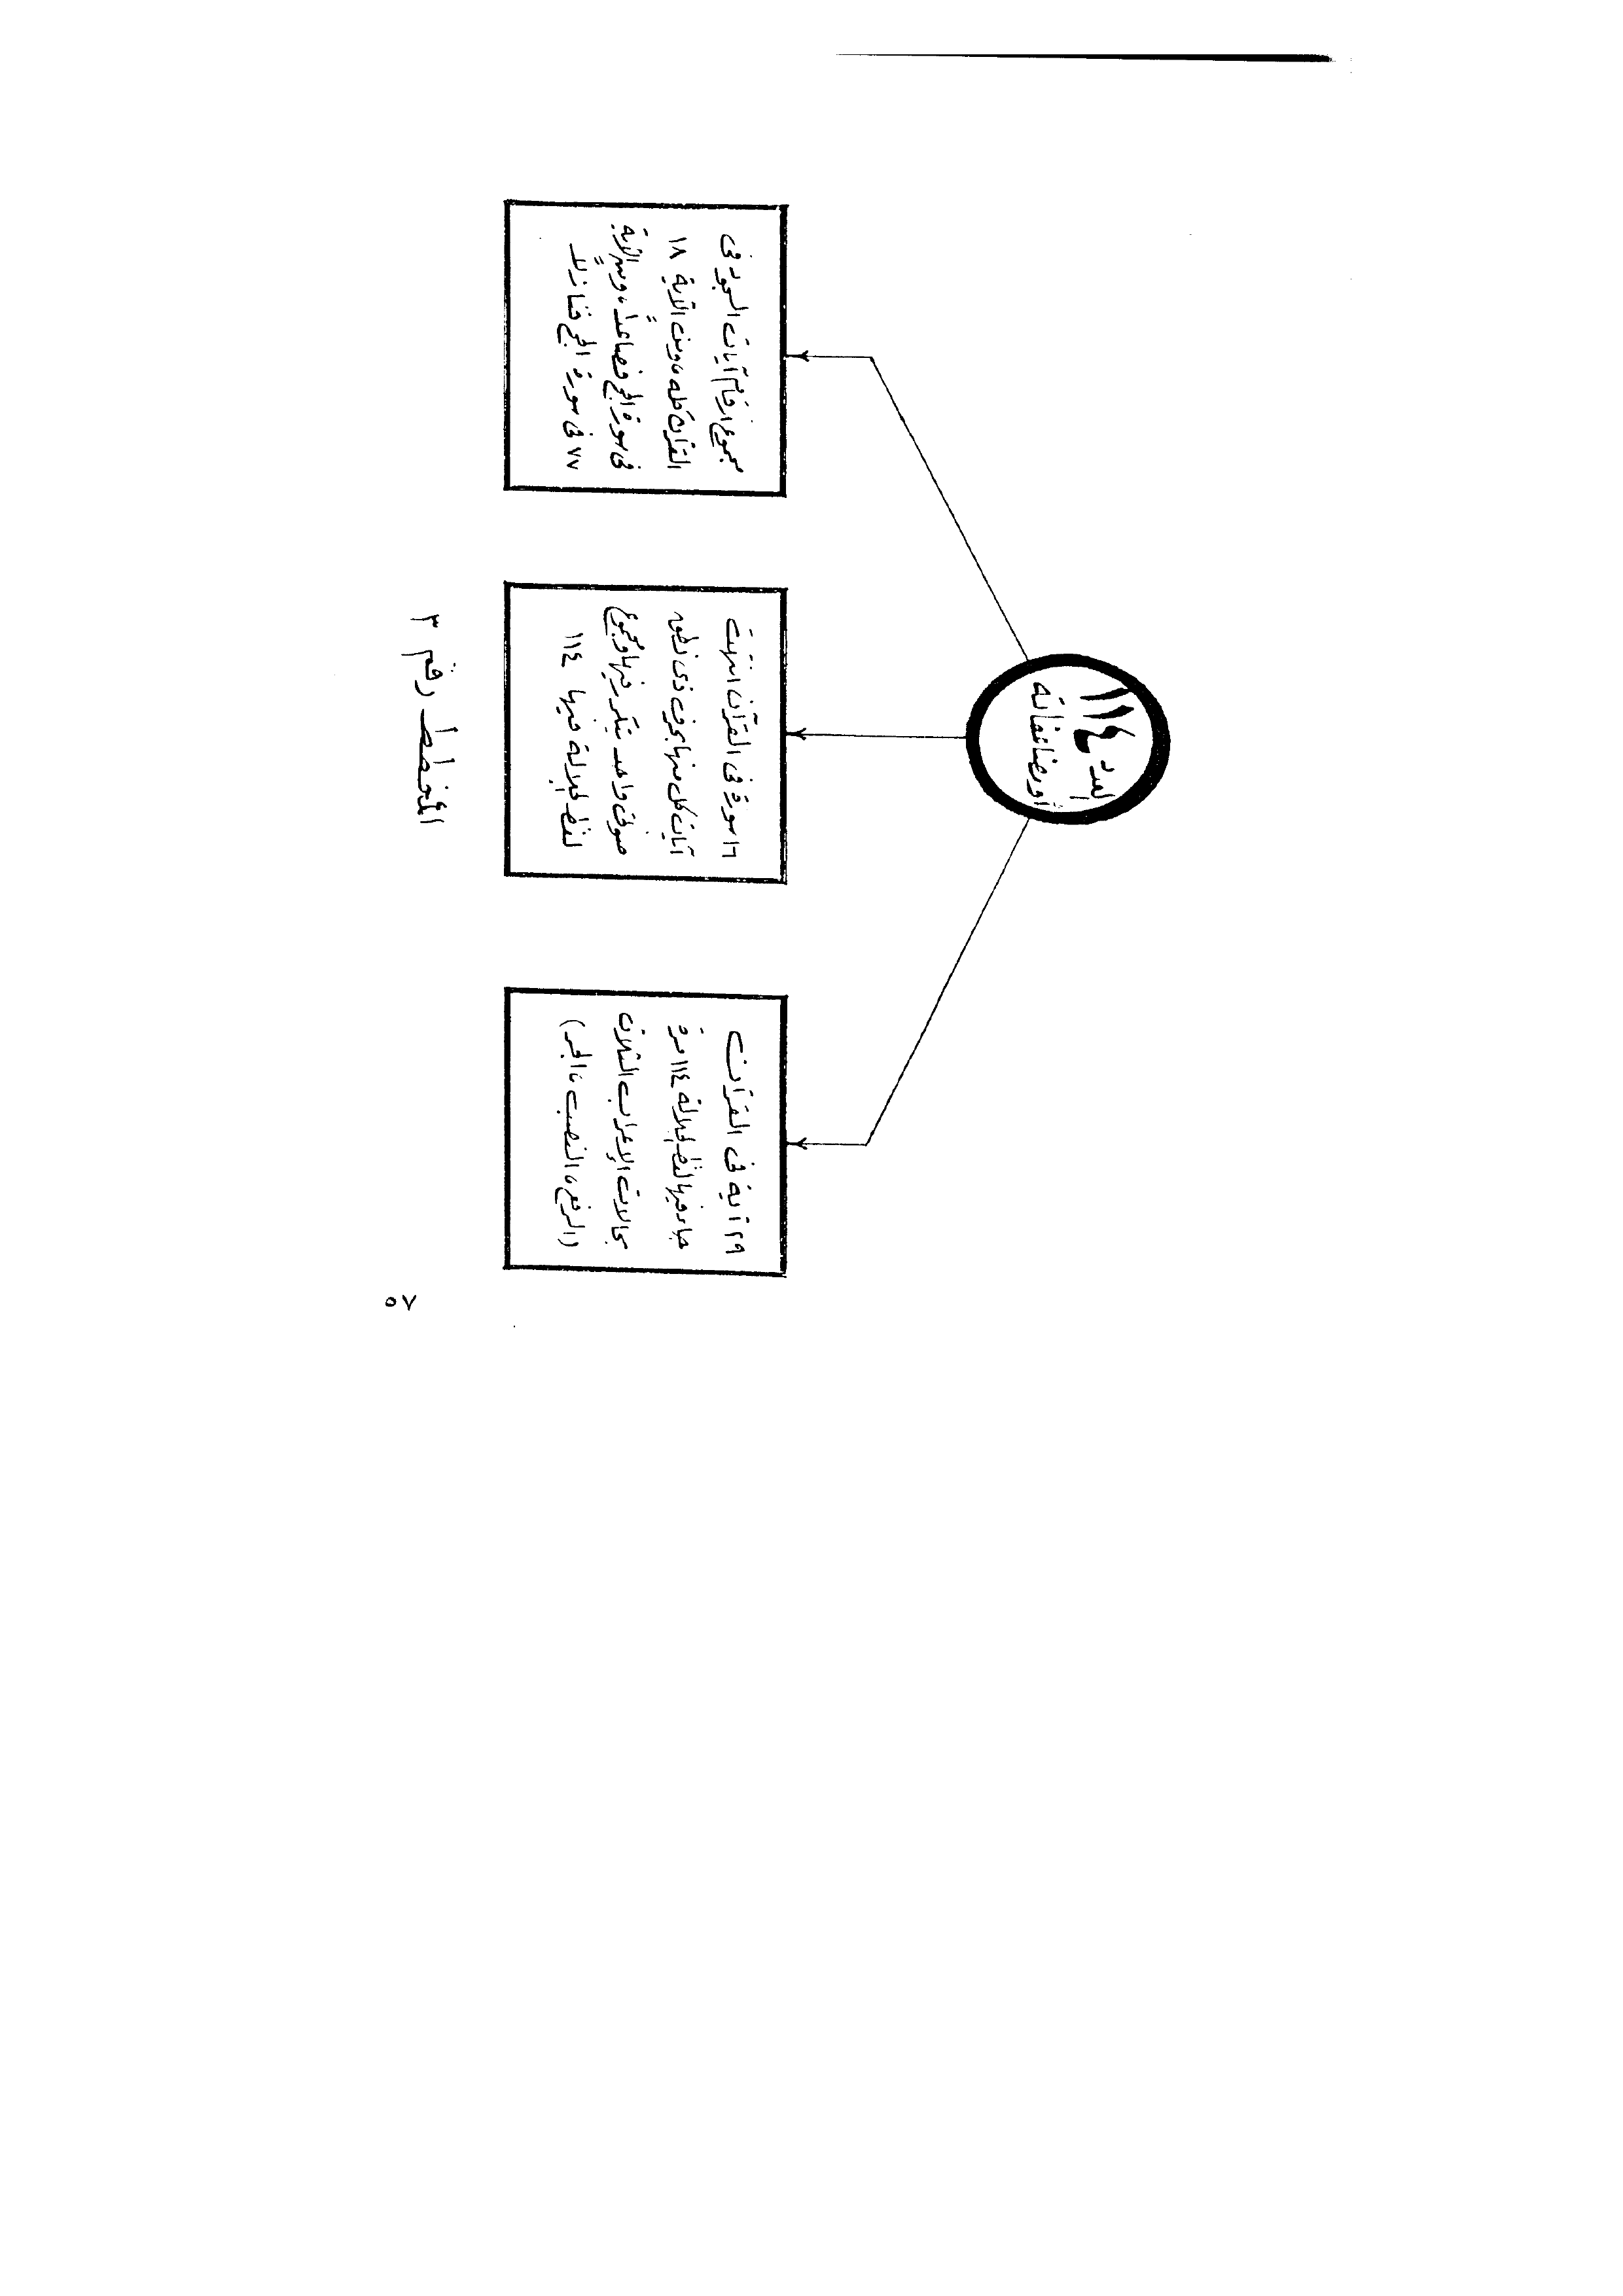 العدد ١١٤
أو مضاعفاته
٢٩ آية في القرآن
جاء فيها لفظ الجلالة ١١٤ مرة
بحالات الإعراب الثلاث
(الرفع، النصب، الجر)
١٦ سورة في القرآن انتهت
آيات كل منها بحرف ذي نطق
صوتي واحد يتكرر فيها ومجموع
لفظ الجلالة فيها ١١٤
مجموع أرقام آيات السجود في
القرآن كله، ومن الآية ١٨
في سورة الحج فصاعداً، ومن الآية
٧٧ في سورة الحج فنازلاً
المخطط رقم ٣
٥٧